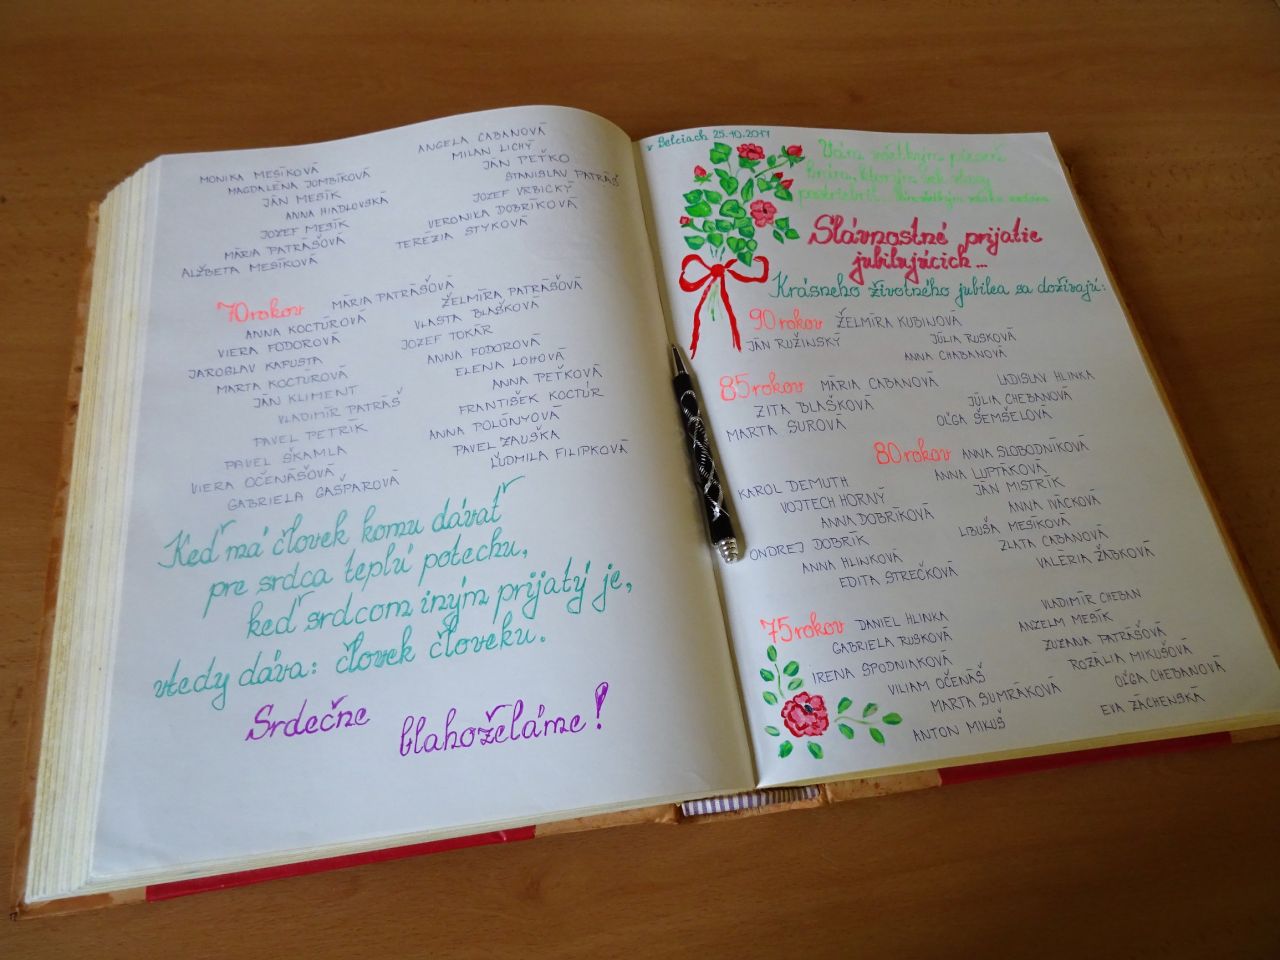 MONIKA MESÍKOVÁ
MAGDALÉNA JOMBÍKOVÁ
JÁN MESÍK
ANNA HIADLOVSKÁ
JOZEF MESÍK
MÁRIA PATRÁŠOVÁ
ALŽBETA MESÍKOVÁ
ANGELA CABANOVÁ
MILAN LICHÝ
JÁN PEŤKO
STANISLAV PATRÁŠ
JOZEF VRBICKÝ
VERONIKA DOBRÍKOVÁ
TERÉZIA STYKOVÁ
70 rokov MÁRIA PATRÁŠOVÁ
ANNA KOCTÚROVÁ
VIERA FODOROVÁ
JAROSLAV KAPUSTA
MARTA KOCTÚROVÁ
JÁN KLIMENT
VLADIMÍR PATRÁŠ
PAVEL PETRÍK
PAVEL ŠKAMLA
VIERA OČENÁŠOVÁ
GABRIELA GAŠPAROVÁ
ŽELMÍRA PATRÁŠOVÁ
VLASTA BLAŠKOVÁ
JOZEF TOKÁR
ANNA FODOROVÁ
ELENA LOHOVÁ
ANNA PEŤKOVÁ
FRANTIŠEK KOCTÚR
ANNA POLÓNYOVÁ
PAVEL ZAUŠKA
ĽUDMILA FILIPKOVÁ
Keď má človek komu dávať
pre srdca teplú potechu,
keď srdcom iným prijatý je,
vtedy dáva: človek človeku.
Srdečne
blahoželáme!
v Selciach 25.10.2017
Vám všetkým
Slávnostné prijatie
jubilujúcich...
Krásneho životného jubilea sa dožívajú:
90 rokov ŽELMÍRA KUBINOVÁ
JÁN RUŽINSKÝ
JÚLIA RUSKOVÁ
ANNA CHABANOVÁ
85 rokov MÁRIA CABANOVÁ
ZITA BLAŠKOVÁ
MARTA SUROVÁ
LADISLAV HLINKA
JÚLIA CHEBANOVÁ
OĽGA ŠEMŠELOVÁ
80 rokov ANNA SLOBODNÍKOVÁ
KAROL DEMUTH
VOJTECH HORNÝ
ANNA DOBRÍKOVÁ
ONDREJ DOBRÍK
ANNA HLINKOVÁ
EDITA STREČKOVÁ
ANNA LUPTÁKOVÁ
JÁN MISTRÍK
ANNA IVÁCKOVÁ
LIBUŠA MESÍKOVÁ
ZLATA CABANOVÁ
VALÉRIA ŽABKOVÁ
75 rokov DANIEL HLINKA
GABRIELA RUSKOVÁ
IRENA SPODNIAKOVÁ
VILIAM OČENÁŠ
MARTA SUMRÁKOVÁ
ANTON MIKUŠ
VLADIMÍR CHEBAN
ANZELM MESÍK
ZUZANA PATRÁŠOVÁ
ROZÁLIA MIKUŠOVÁ
OĽGA CHEBANOVÁ
EVA ZÁCHENSKÁ